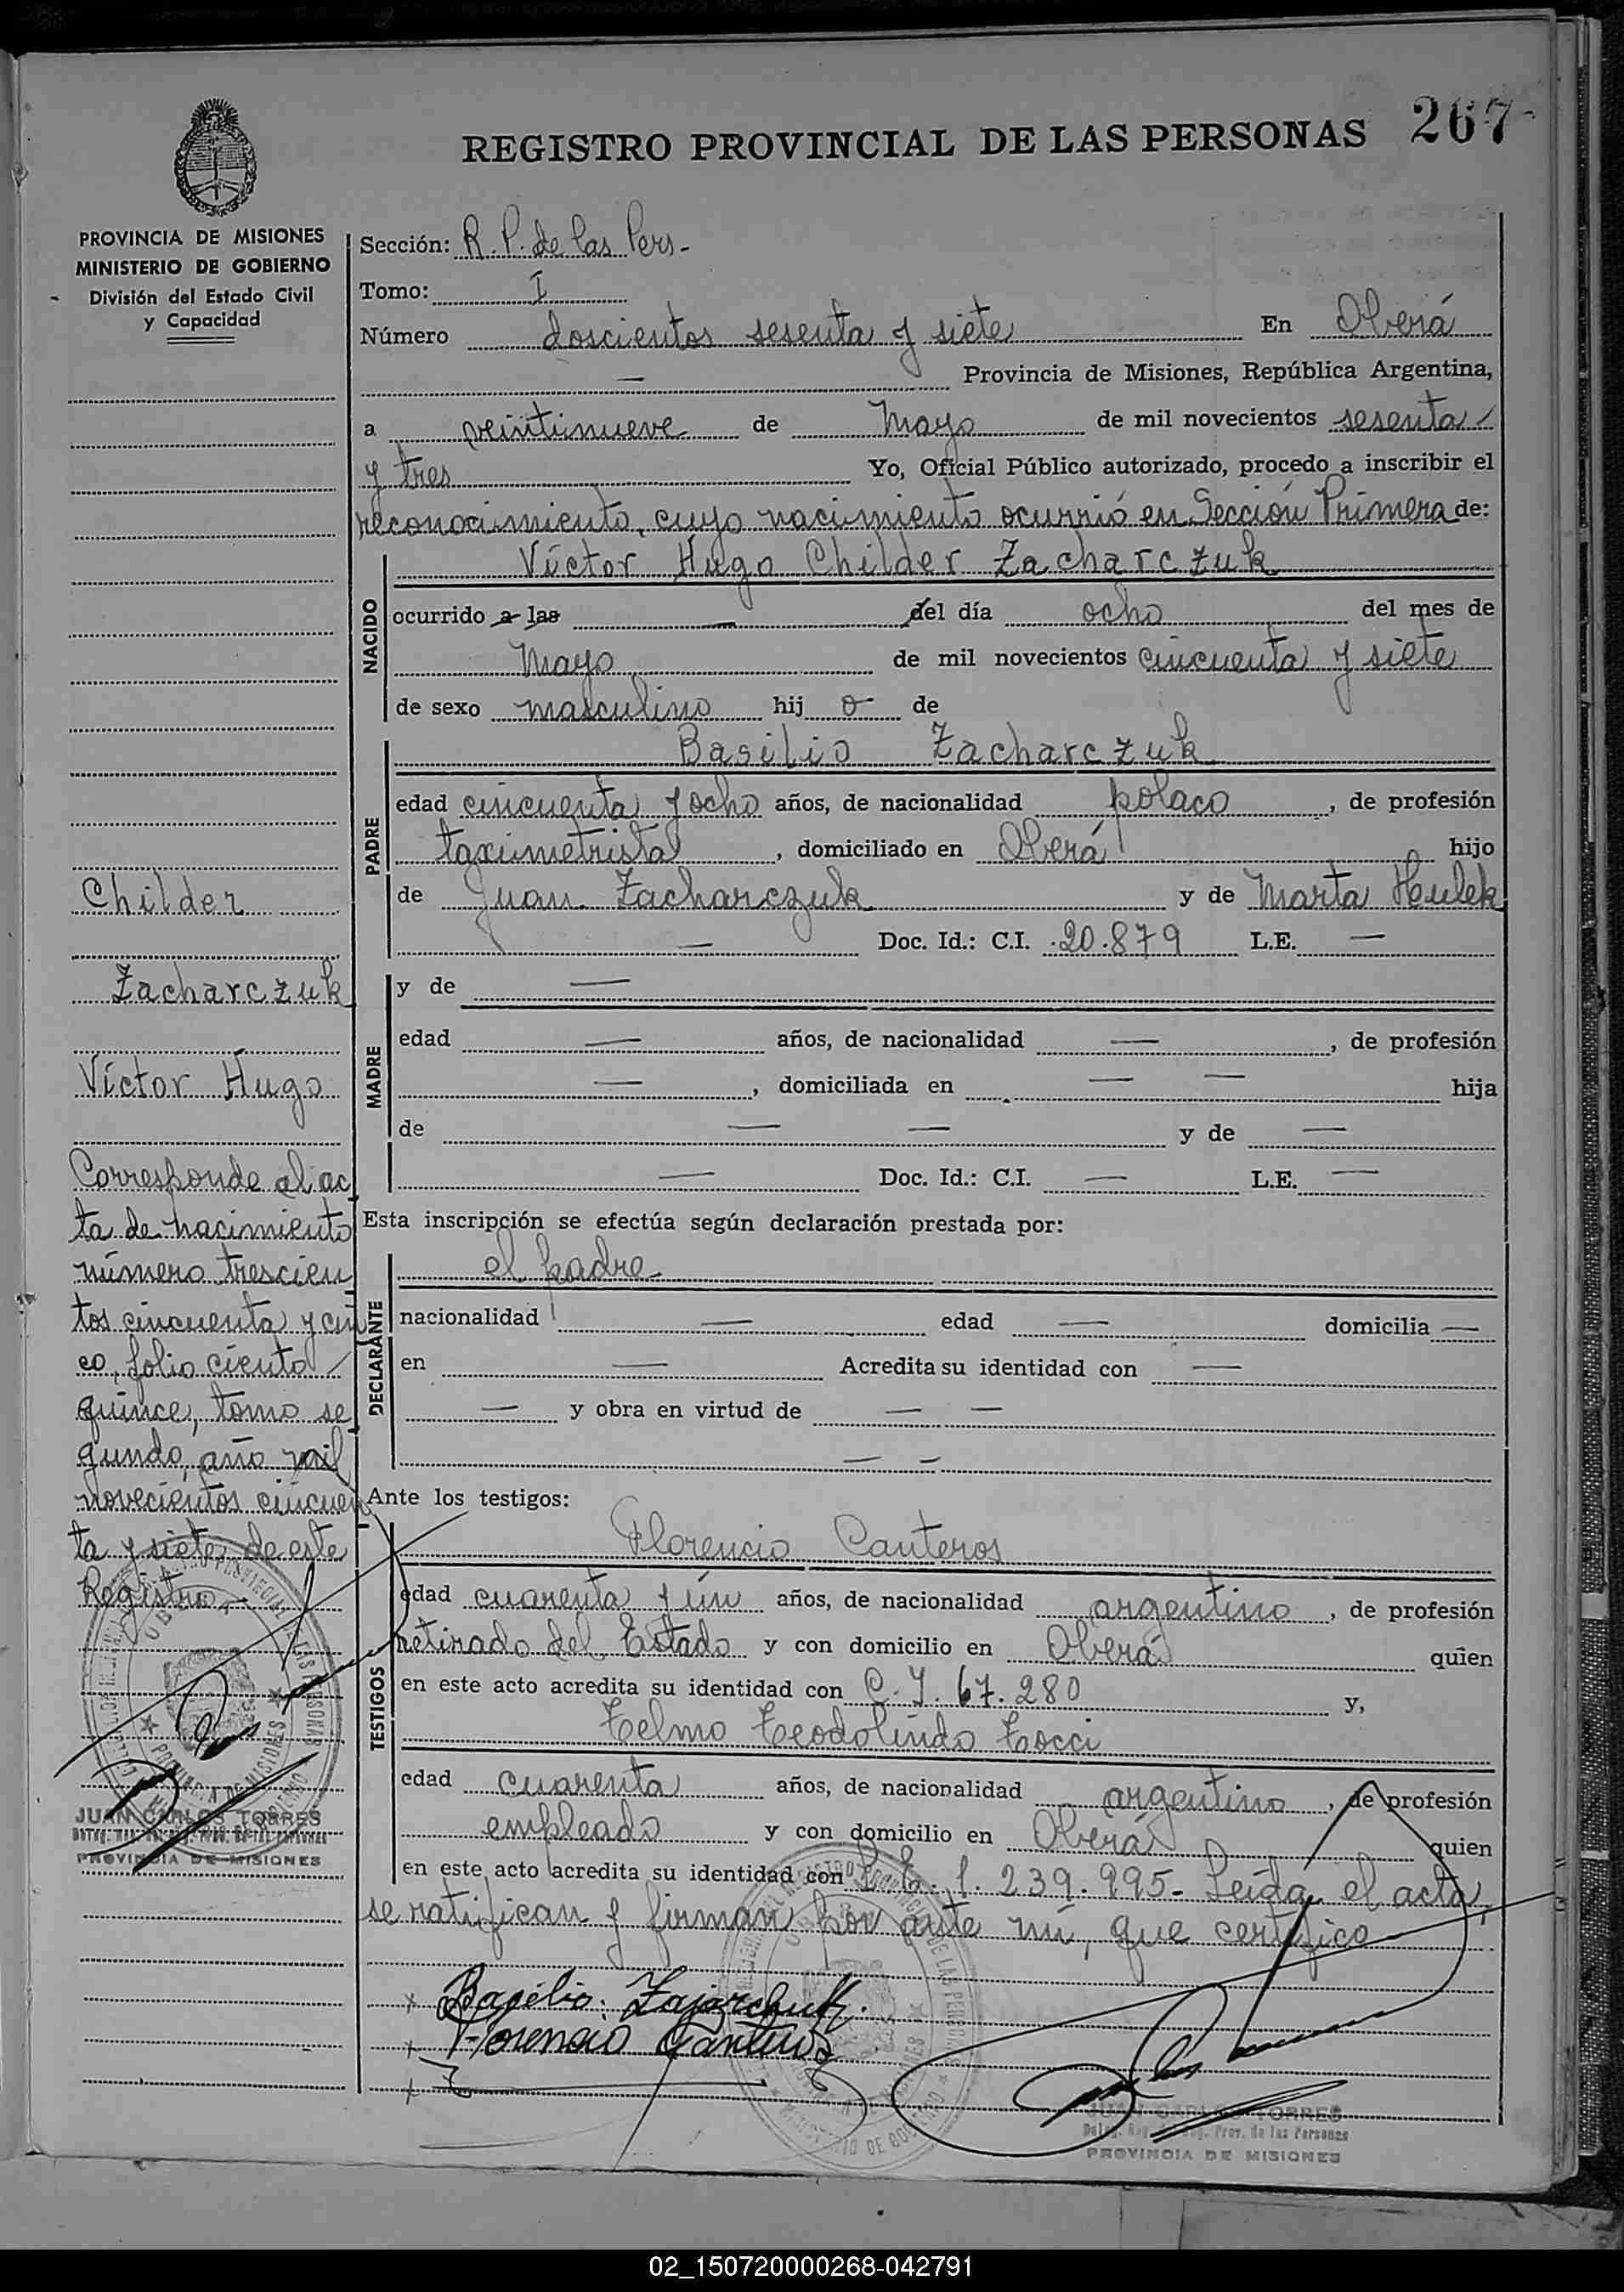 267
REGISTRO PROVINCIAL DE LAS PERSONAS
PROVINCIA DE MISIONES
MINISTERIO DE GOBIERNO
División del Estado Civil
y Capacidad
Sección: R. P. de las Pers-
Tomo: I
Número doscientos sesenta y siete En Oberá
Provincia de Misiones, República Argentina,
a veintinueve de Mayo de mil novecientos sesenta
y tres Yo, Oficial Público autorizado, procedo a inscribir el
reconocimiento, cuyo nacimiento ocurrió en Sección Primera de:
Víctor Hugo Childer Zacharczuk
NACIDO
ocurrido a las — del día ocho del mes de
Mayo de mil novecientos cincuenta y siete
de sexo masculino hijo de
Basilio Zacharczuk
PADRE
edad cincuenta y ocho años, de nacionalidad polaco, de profesión
taximetrista, domiciliado en Oberá hijo
de Juan Zacharczuk y de Marta Hulek
— Doc. Id.: C.I. 20.879 L.E. —
MADRE
y de —
edad — años, de nacionalidad —, de profesión
—, domiciliada en — — hija
de — — y de —
— Doc. Id.: C.I. — L.E. —
Esta inscripción se efectúa según declaración prestada por:
DECLARANTE
el padre
nacionalidad — edad — domicilia —
en — Acredita su identidad con —
— y obra en virtud de — —
— —
Ante los testigos:
TESTIGOS
Florencio Canteros
edad cuarenta y ún años, de nacionalidad argentino, de profesión
retirado del Estado y con domicilio en Oberá quien
en este acto acredita su identidad con C. I. 67.280 y,
Telmo Teodolindo Tocci
edad cuarenta años, de nacionalidad argentino, de profesión
empleado y con domicilio en Oberá quien
en este acto acredita su identidad con L. E. 1.239.995- Leída el acta,
se ratifican y firman por ante mí, que certifico
x Basilio Zajarchuk.
x Florencio Canteros
x
Childer
Zacharczuk
Víctor Hugo
Corresponde al ac
ta de nacimiento
número trescien
tos cincuenta y cin
co, folio ciento
quince, tomo se
gundo, año mil
novecientos cincuen
ta y siete, de este
Registro.-
JUAN CARLOS TORRES
PROVINCIA DE MISIONES
JUAN CARLOS TORRES
Prov. de las Personas
PROVINCIA DE MISIONES
02_150720000268-042791